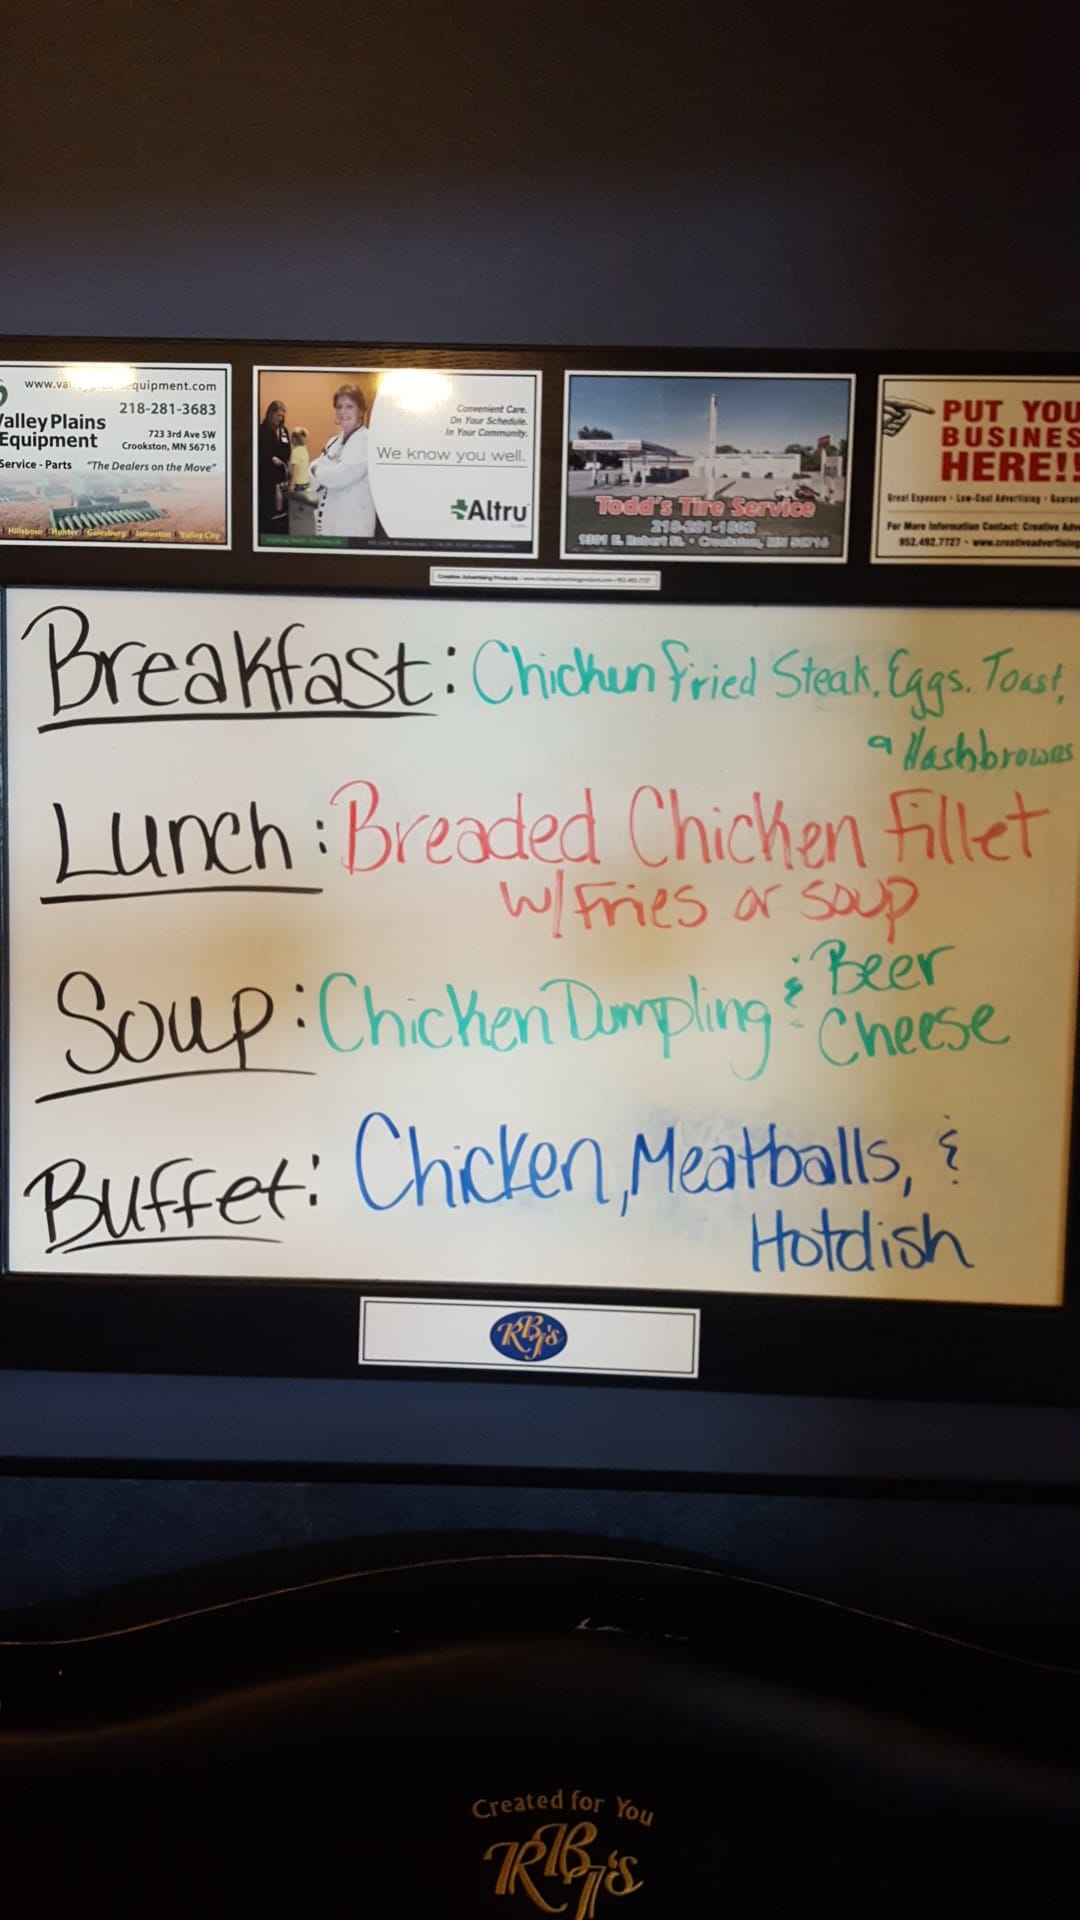 www.va equipment.com
218-281-3683
Valley Plains
Equipment
723 3rd Ave SW
Crookston, MN 56716
Service - Parts "The Dealers on the Move"
Hillsboro Hunter Galesburg Jamestown Valley City
Convenient Care.
On Your Schedule.
In Your Community.
We know you well.
Altru
Todd's Tire Service
218-281-1802
1301 E. Robert St. • Crookston, MN 56716
PUT YOU
BUSINES
HERE!!
Great Exposure • Low-Cost Advertising • Guaran
For More Information Contact: Creative Adv
952.492.7727 • www.creativeadvertising
Creative Advertising Products - www.creativeadvertising.com • 952.492.7727
Breakfast: Chicken Fried Steak, Eggs, Toast,
& Hashbrowns
Lunch: Breaded Chicken Fillet
w/ Fries or Soup
Soup: Chicken Dumpling & Beer
Cheese
Buffet: Chicken, Meatballs, &
Hotdish
RBJ's
Created for You
RBJ's